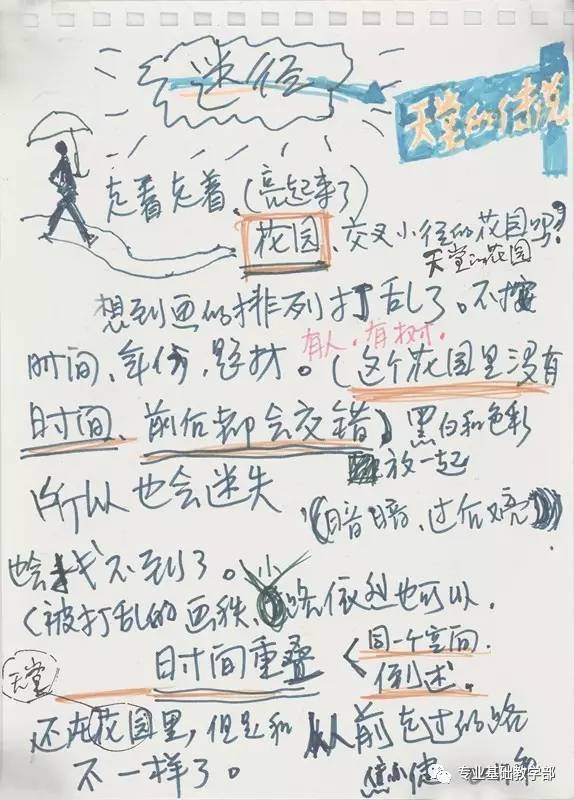 迷径
天堂的传说
走着走着(亮起来了)
花园、交叉小径的花园吗?
天堂的花园
想到画的排列打乱了。不按
有人,有树.
时间、年份,题材。(这个花园里没有
时间、前后都会交错)黑白和色彩
放一起
所以也会迷失
(暗暗、过后又亮)
也会找不到了。
(被打乱的画秩、小路依然也可以.
时间重叠
同一个空间.
倒述。
天堂
还在花园里,但是和从前走过的路
不一样了。
焦小健
专业基础教学部